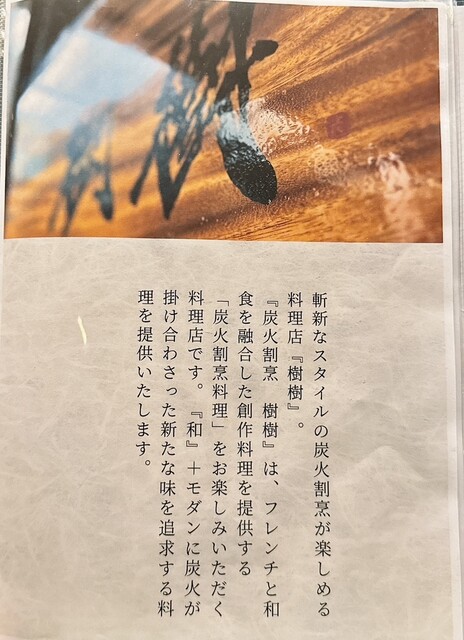 斬新なスタイルの炭火割烹が楽しめる
料理店『樹樹』。
『炭火割烹　樹樹』は、フレンチと和
食を融合した創作料理を提供する
「炭火割烹料理」をお楽しみいただく
料理店です。『和』＋モダンに炭火が
掛け合わさった新たな味を追求する料
理を提供いたします。